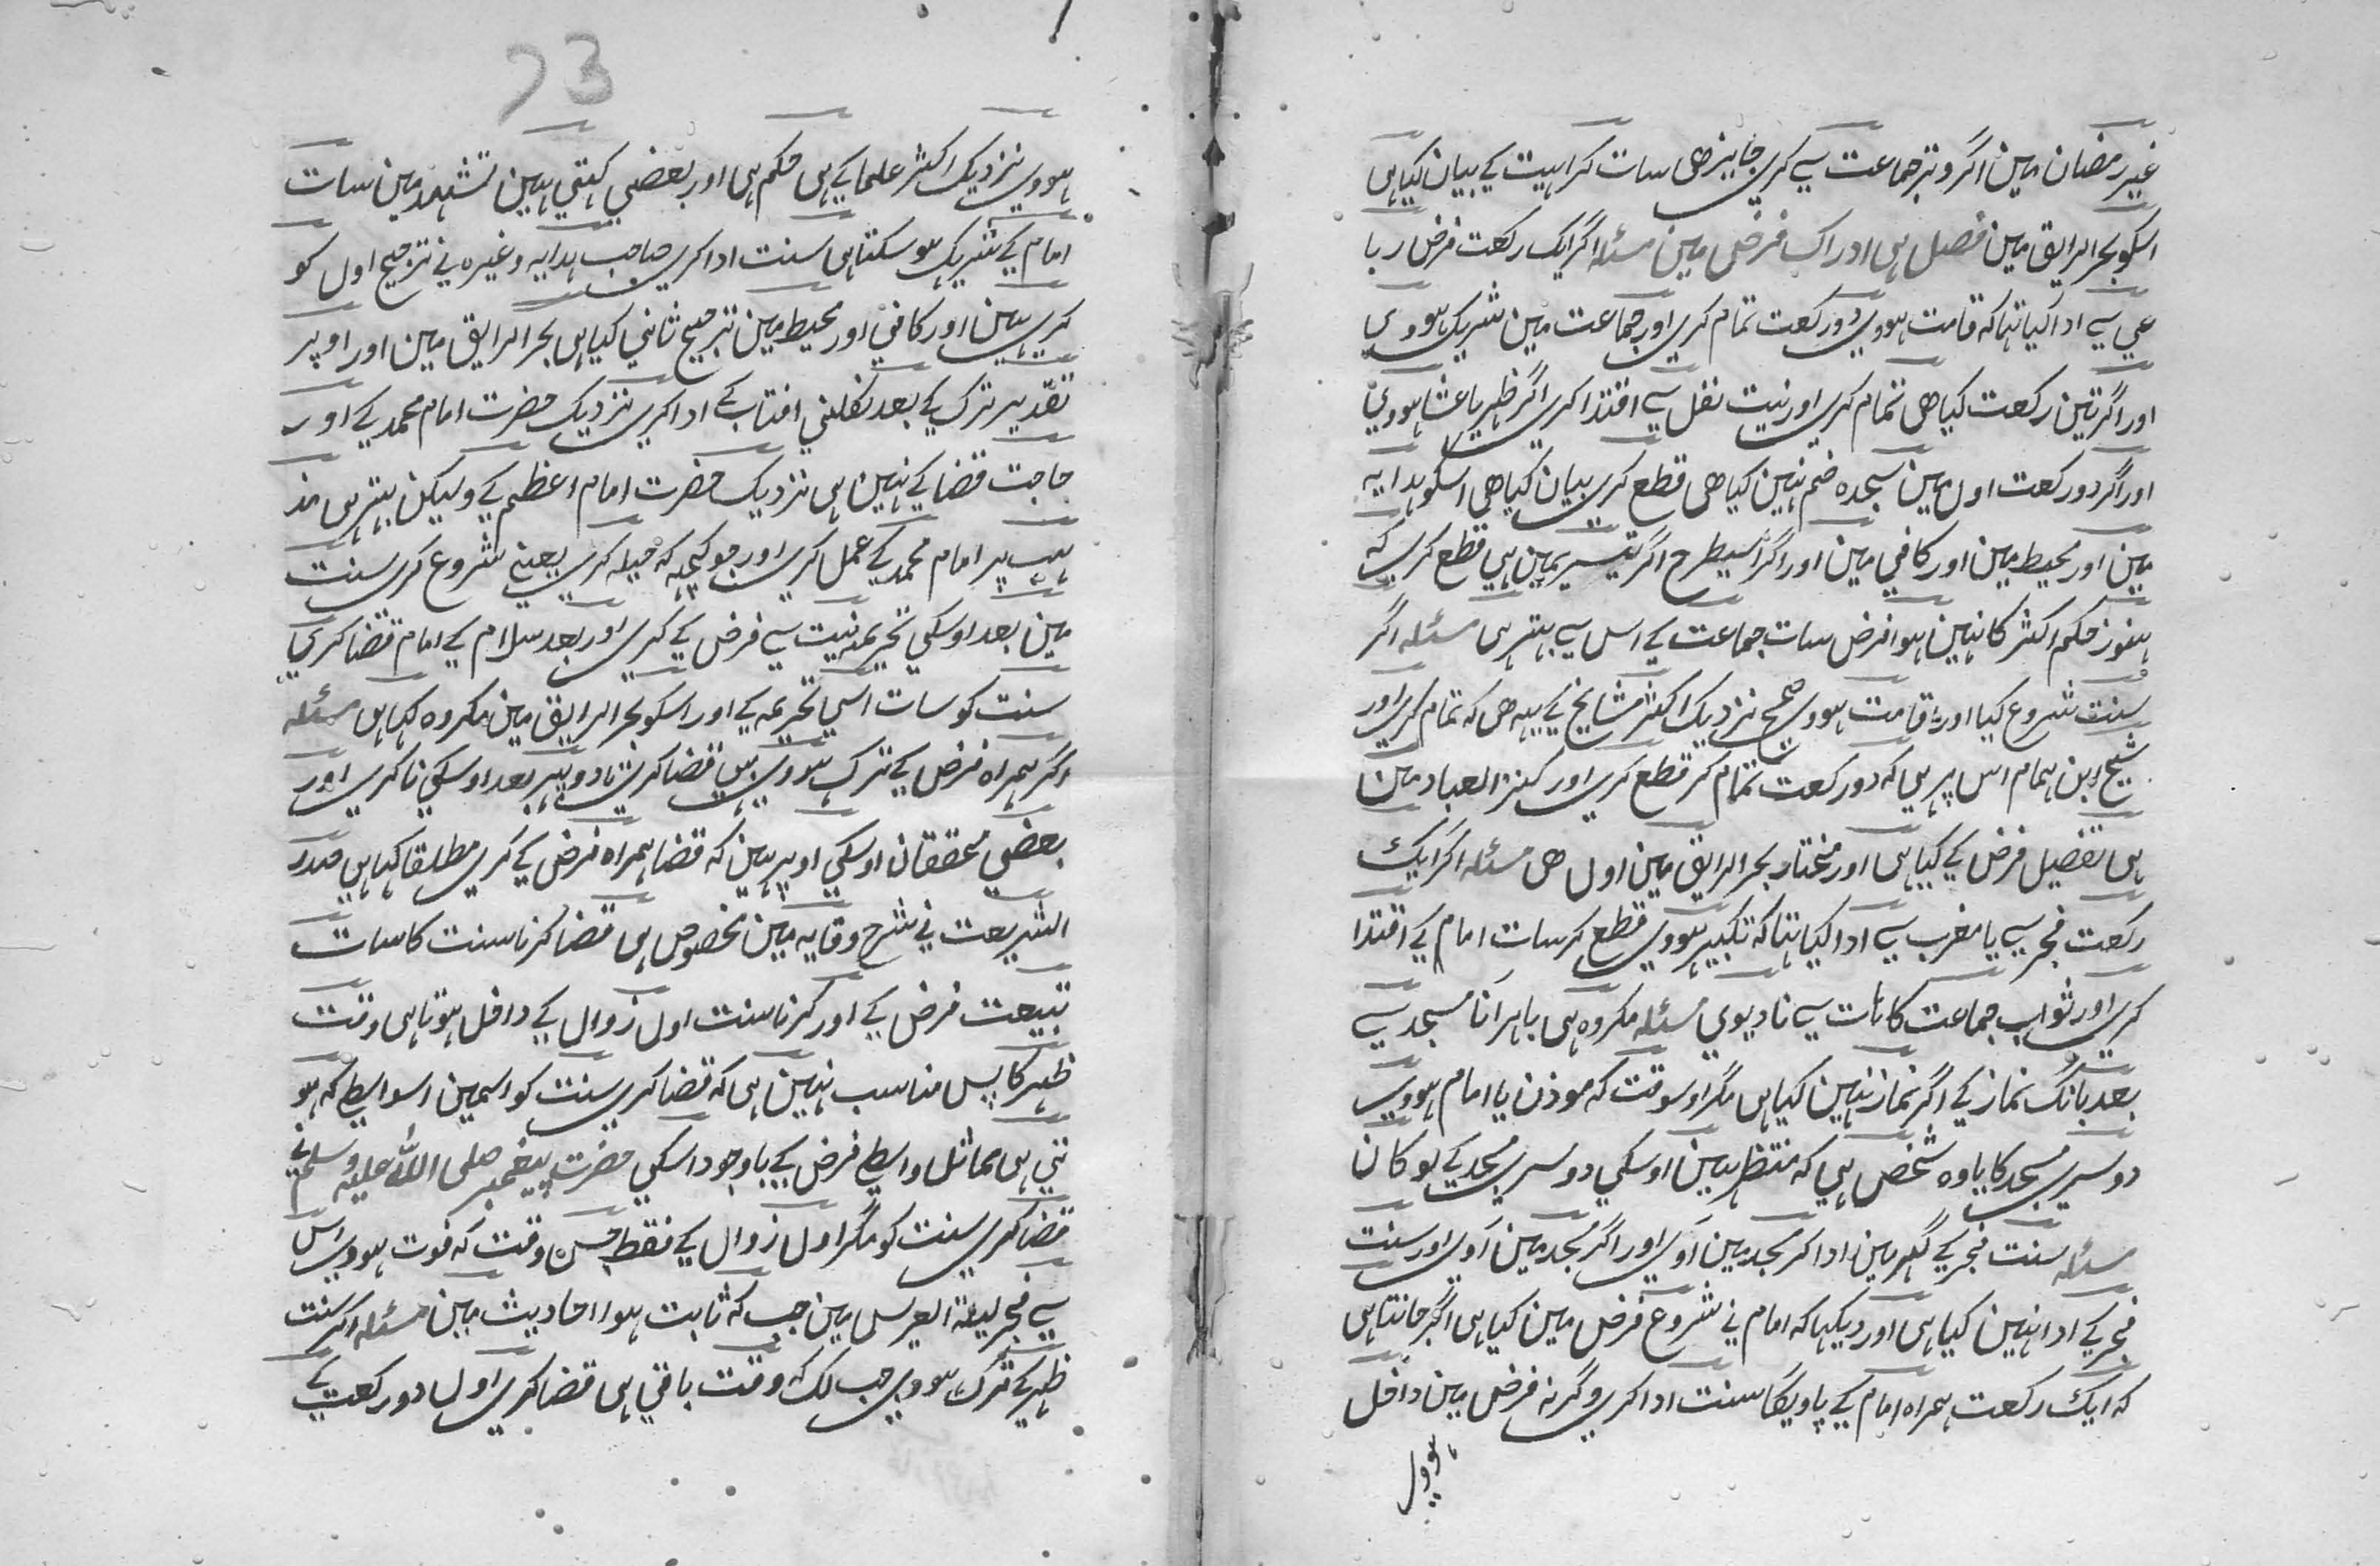 غیر رمضان مین اگر وتر جماعت سے کری جایز هی سات کراہیت کے بیان کیا ہی
اسکو بحر الرایق مین فصل ہی ادراک فرض مین مسئلہ اگر ایک رکعت فرض ربا
عی سے ادا کیا تھا کہ قامت ہووی دو رکعت تمام کری اور جماعت مین شریک ہووی
اور اگر تین رکعت کیا هی تمام کری اور نیت نفل سے اقتدا کری اگر ظہر یا عشا ہووی
اور اگر دو رکعت اول مین سجدہ ضم نہین کیا هی قطع کری بیان کیا هی اسکو ہدایہ
مین اور محیط مین اور کافی مین اور اگر اسیطرح اگر تیسری مین ہی قطع کری کہ
ہنوز حکم اکثر کا نہین ہوا فرض سات جماعت کے اس سے بہتر ہی مسئلہ اگر
سنت شروع کیا اور قامت ہووی صحیح نزدیک اکثر مشایخ کے یہہ هی کہ تمام کری اور
شیخ ابن ہمام اس پر ہی کہ دو رکعت تمام کر قطع کری اور کنز العباد مین
ہی تفصیل فرض کے کیا ہی اور مختار بحر الرایق مین اول هی مسئلہ اگر ایک
رکعت فجر سے یا مغرب سے ادا کیا تھا کہ تکبیر ہووی قطع کر سات امام کے اقتدا
کری اور ثواب جماعت کا ہات سے نا دیوی مسئلہ مکروہ ہی باہر آنا مسجد سے
بعد بانگ نماز کے اگر نماز نہین کیا ہی مگر اوسوقت کہ موذن یا امام ہووی
دوسری مسجد کا یا وہ شخص ہی کہ منتظر ہین اوسکی دوسری مسجد کے لوکان
مسئلہ سنت فجر کے گھر مین ادا کر مسجد مین آوی اور اگر مسجد مین آوی اور سنت
فجر کے ادا نہین کیا ہی اور دیکہا کہ امام نی شروع فرض مین کیا ہی اگر جانتا ہی
کہ ایک رکعت ہمراہ امام کے پاویگا سنت ادا کری وگرنہ فرض مین داخل
ہووی
73
ہووی نزدیک اکثر علما کے ہی حکم ہی اور بعضی کہتی ہین تشہد مین سات
امام کے شریک ہو سکتا ہی سنت ادا کری صاحب ہدایہ وغیرہ نی ترجیح اول کو
کری ہین اور کافی اور محیط مین ترجیح ثانی کیا ہی بحر الرایق مین اور اوپر
تقدیر ترک کے بعد نکلنی افتاب کے ادا کری نزدیک حضرت امام محمد کے اور
حاجت قضا کے نہین ہی نزدیک حضرت امام اعظم کے ولیکن بہتر ہی مذ
ہب پر امام محمد کے عمل کری اور جو کہیہ کہ حیلہ کری یعنے شروع کری سنت
مین بعد اوسکی تحریمہ نیت سے فرض کے کری اور بعد سلام کے امام قضا کری
سنت کو سات اسی تحریمہ کے اور اسکو بحر الرایق مین مکروہ کہا ہی مسئلہ
اگر ہمراہ فرض کے ترک ہووی پس قضا کری تا دوپہر بعد اوسکی نا کری اور
بعضی محققان اوسکی اوپر ہین کہ قضا ہمراہ فرض کے کری مطلقا کہا ہی صدر
الشریعت نی شرح وقایہ مین مخصوص ہی قضا کرنا سنت کا سات
تبیعت فرض کے اور کرنا سنت اول زوال کے داخل ہوتا ہی وقت
ظہر کا پس مناسب نہین ہی کہ قضا کری سنت کو اسمین اسواسطے کہ ہو
تی ہی مماثل واسطے فرض کے باوجود اسکی حضرت پیغمبر صلی اللہ علیہ وسلم نے
قضا کری سنت کو مگر اول زوال کے فقط جس وقت کہ فوت ہووی اس
سے فجر لیلۃ العریس مین جب کہ ثابت ہوا احادیث مین مسئلہ اگر سنت
ظہر کے ترک ہووی جب لک کہ وقت باقی ہی قضا کری اول دو رکعت کے